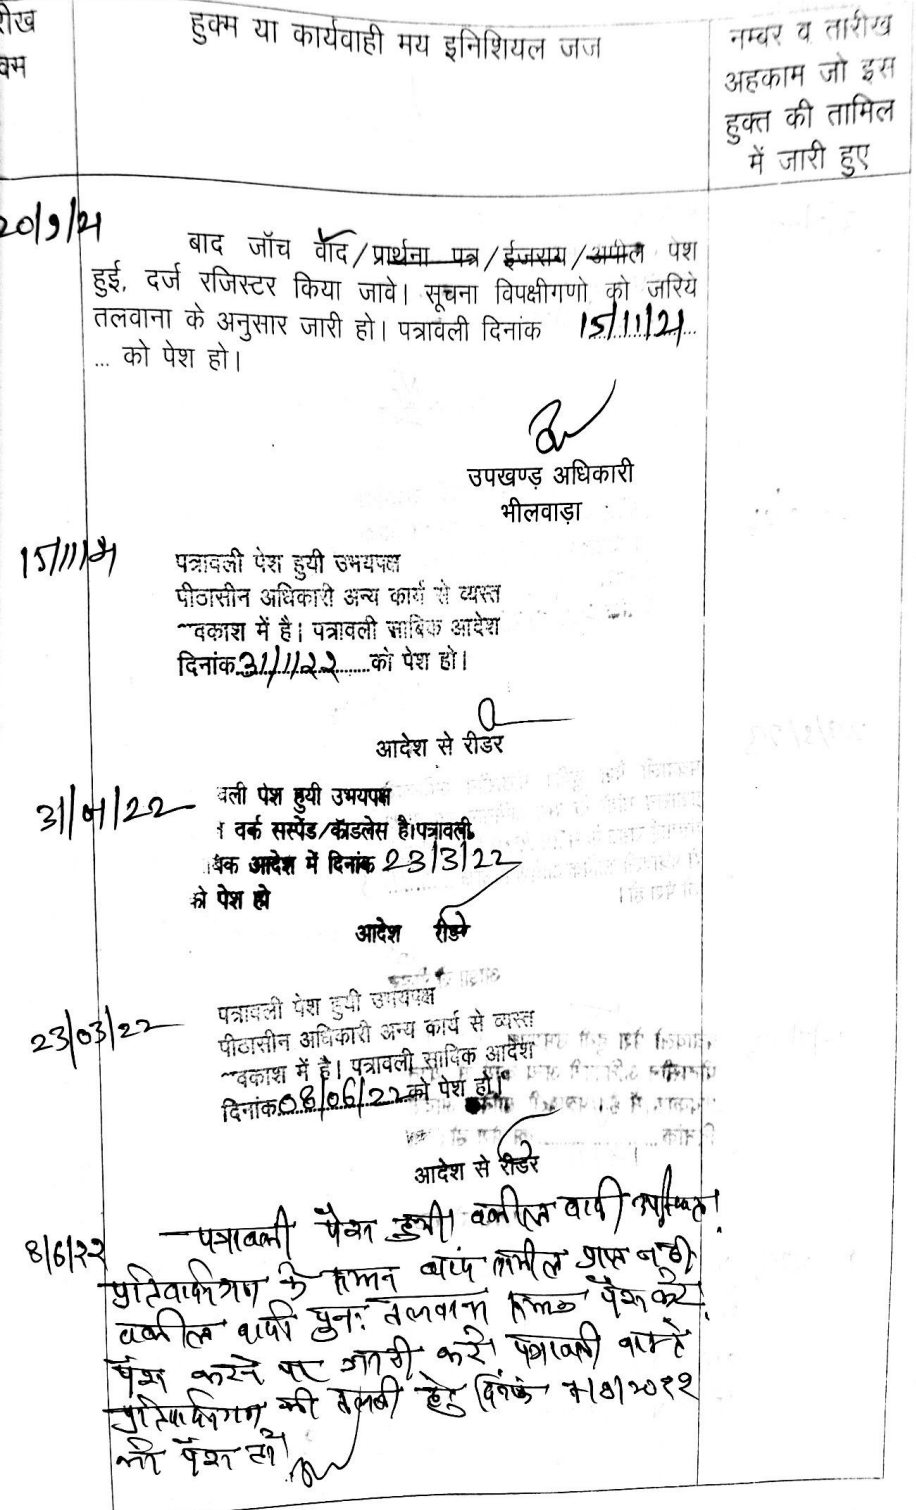 रीख
हुक्म या कार्यवाही मय इनिशियल जज
नम्बर व तारीख
अहकाम जो इस
हुक्त की तामिल
में जारी हुए
20/9/21
बाद जॉच वाद/प्रार्थना पत्र/ईजराय/अपील पेश
हुई, दर्ज रजिस्टर किया जावे। सूचना विपक्षीगणो को जरिये
तलवाना के अनुसार जारी हो। पत्रावली दिनांक 15/11/21
... को पेश हो।
उपखण्ड अधिकारी
भीलवाड़ा
15/11/21
पत्रावली पेश हुयी उभयपक्ष
पीठासीन अधिकारी अन्य कार्य से व्यस्त
वकाश में है। पत्रावली साबिक आदेश
दिनांक 31/1/22 को पेश हो।
आदेश से रीडर
31/01/22
वली पेश हुयी उभयपक्ष
वर्क सस्पेंड/कॅाडलेस है।पत्रावली
बिक आदेश में दिनांक 23/3/22
को पेश हो
आदेश रीडर
23/03/22
पत्रावली पेश हुयी उभयपक्ष
पीठासीन अधिकारी अन्य कार्य से व्यस्त
वकाश में है। पत्रावली साबिक आदेश
दिनांक 08/06/22 को पेश हो।
आदेश से रीडर
8/6/22
पत्रावली पेश हुयी। वकील वादी उपस्थित।
प्रतिवादीगण के सम्मन बाद तामील प्राप्त नही
वकील वादी पुनः तलवाना सम्मन पेश करे,
पेश करने पर जारी करे। पत्रावली वास्ते
प्रतिवादीगण की तलबी हेतु दिनांक 7/8/2022
को पेश हो।